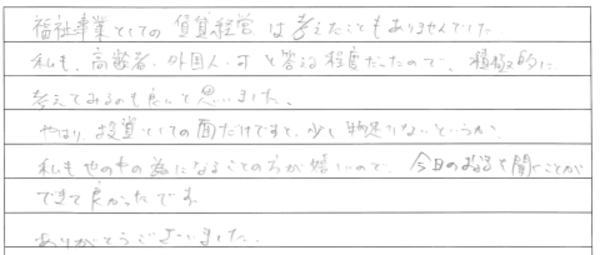 福祉事業としての賃貸経営は考えたこともありませんでした。
私も、高齢者・外国人・可と答える程度だったので、積極的に
考えてみるのも良いと思いました。
やはり、投資としての面だけですと、少し物足りないというか、
私も世の中の為になることの方が嬉しいので、今日のお話を聞くことが
できて良かったです。
ありがとうございました。